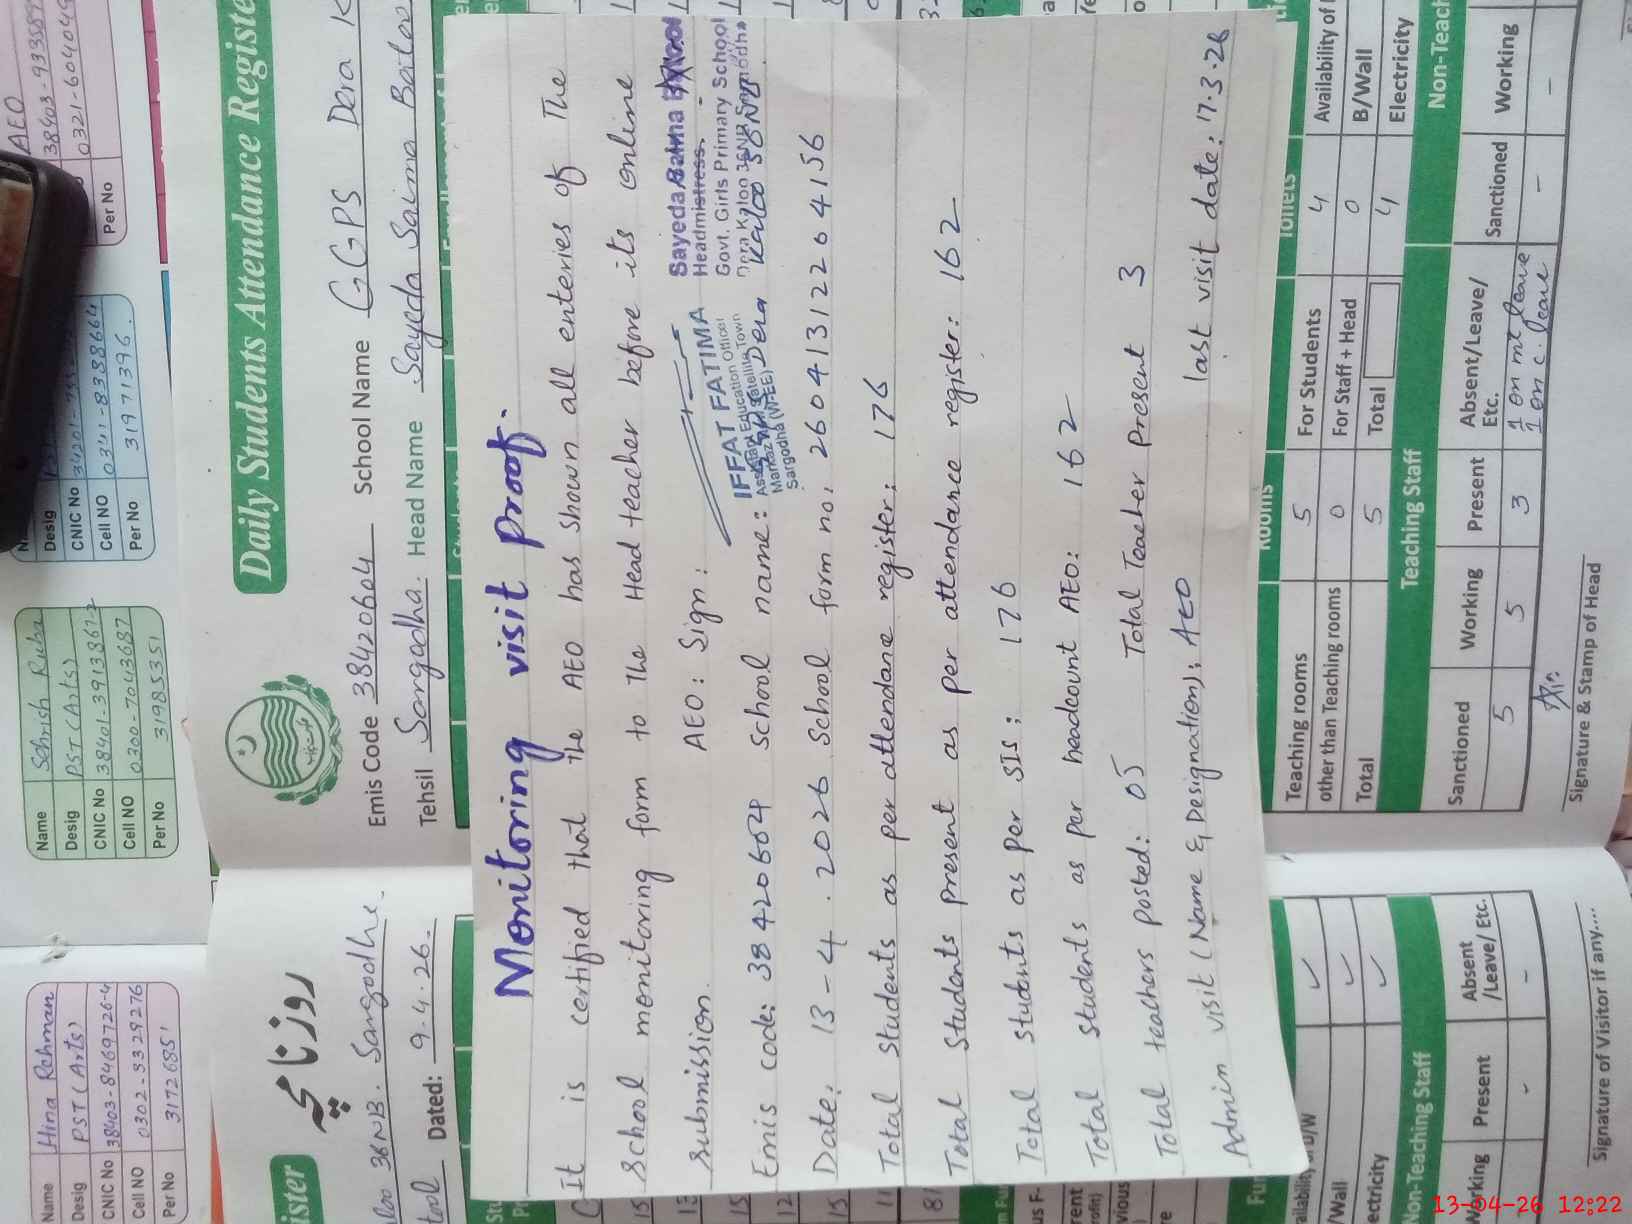 Monitoring visit proof.
It is certified that the AEO has shown all enteries of The
School monitoring form to the Head teacher before its online
submission. AEO: Sign:
IFFAT FATIMA
Assistant Education Officer
Sargodha
Sayeda Saima
Headmistress.
Govt. Girls Primary School
Dera Kaloo 36NB Sargodha
Emis code: 38420604 School name: Dera Kaloo 36NB
Date: 13-4.2026 School form no: 26041312204156
Total students as per attendane register: 176
Total students present as per attendance register: 162
Total students as per SIS: 176
Total students as per headcount AEO: 162
Total teachers posted: 05 Total Teacher present 3
Admin visit (Name & Designation): AEO last visit date: 17.3.26
Daily Students Attendance Registe
Emis Code 38420604 School Name GGPS Dera K
Tehsil Sargodha. Head Name Sayeda Saima Batoo
Rooms Toilets
Teaching rooms 5 For Students 4 Availability of
other than Teaching rooms 0 For Staff + Head 0 B/Wall
Total 5 Total 4 Electricity
Teaching Staff Non-Teach
Sanctioned Working Present Absent/Leave/ Etc. Sanctioned Working
5 5 3 1 on mt leave - -
1 on c. leave
Signature & Stamp of Head
ister روزنامچہ
aloo 36NB. Sargodha.
Dated: 9.4.26.
/Wall
ectricity
Non-Teaching Staff
Working Present Absent /Leave/ Etc.
- -
Signature of Visitor if any....
Name Hina Rehman
Desig PST (Arts)
CNIC No 38403-8469726-4
Cell NO 0302-3329276
Per No 3172685
Name Sehrish Ruba
Desig PST (Arts)
CNIC No 38401-3913867-2
Cell NO 0300-7043687
Per No 31985351
Desig
CNIC No
Cell NO 0341-8388664
Per No 31971396.
AEO
38403-933589
0321-604049
Per No
13-04-26 12:22